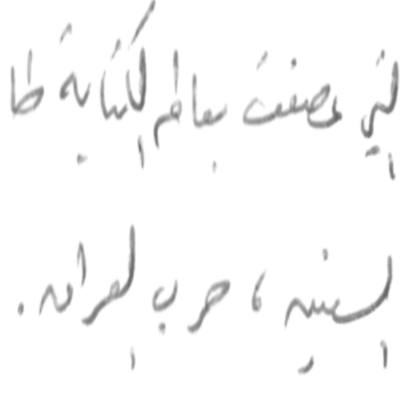 التي عصفت بعالم الكتابة طا
السنين ، حرب العراق .